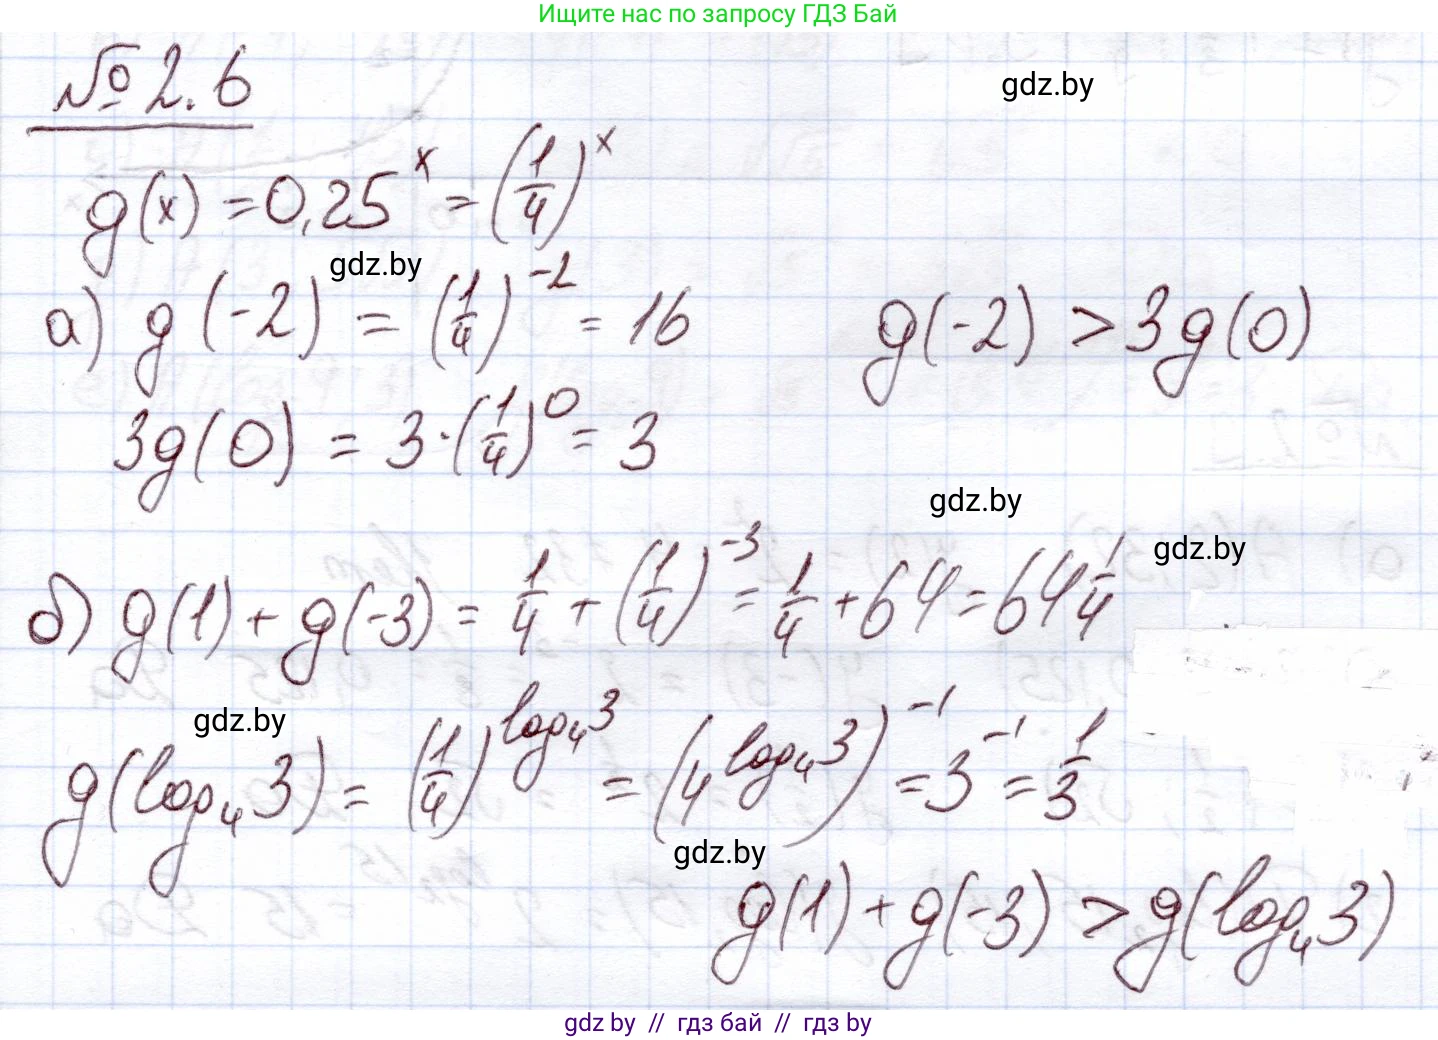 Ищите нас по запросу ГДЗ Бай
№ 2.6
gdz.by
g(x) = 0,25^x = (1/4)^x
gdz.by
а) g(-2) = (1/4)^-2 = 16 g(-2) > 3g(0)
3g(0) = 3·(1/4)^0 = 3
gdz.by
gdz.by
б) g(1) + g(-3) = 1/4 + (1/4)^-3 = 1/4 + 64 = 64 1/4
gdz.by
g(log₄3) = (1/4)^log₄3 = (4^log₄3)^-1 = 3^-1 = 1/3
gdz.by
g(1) + g(-3) > g(log₄3)
gdz by // гдз бай // гдз by